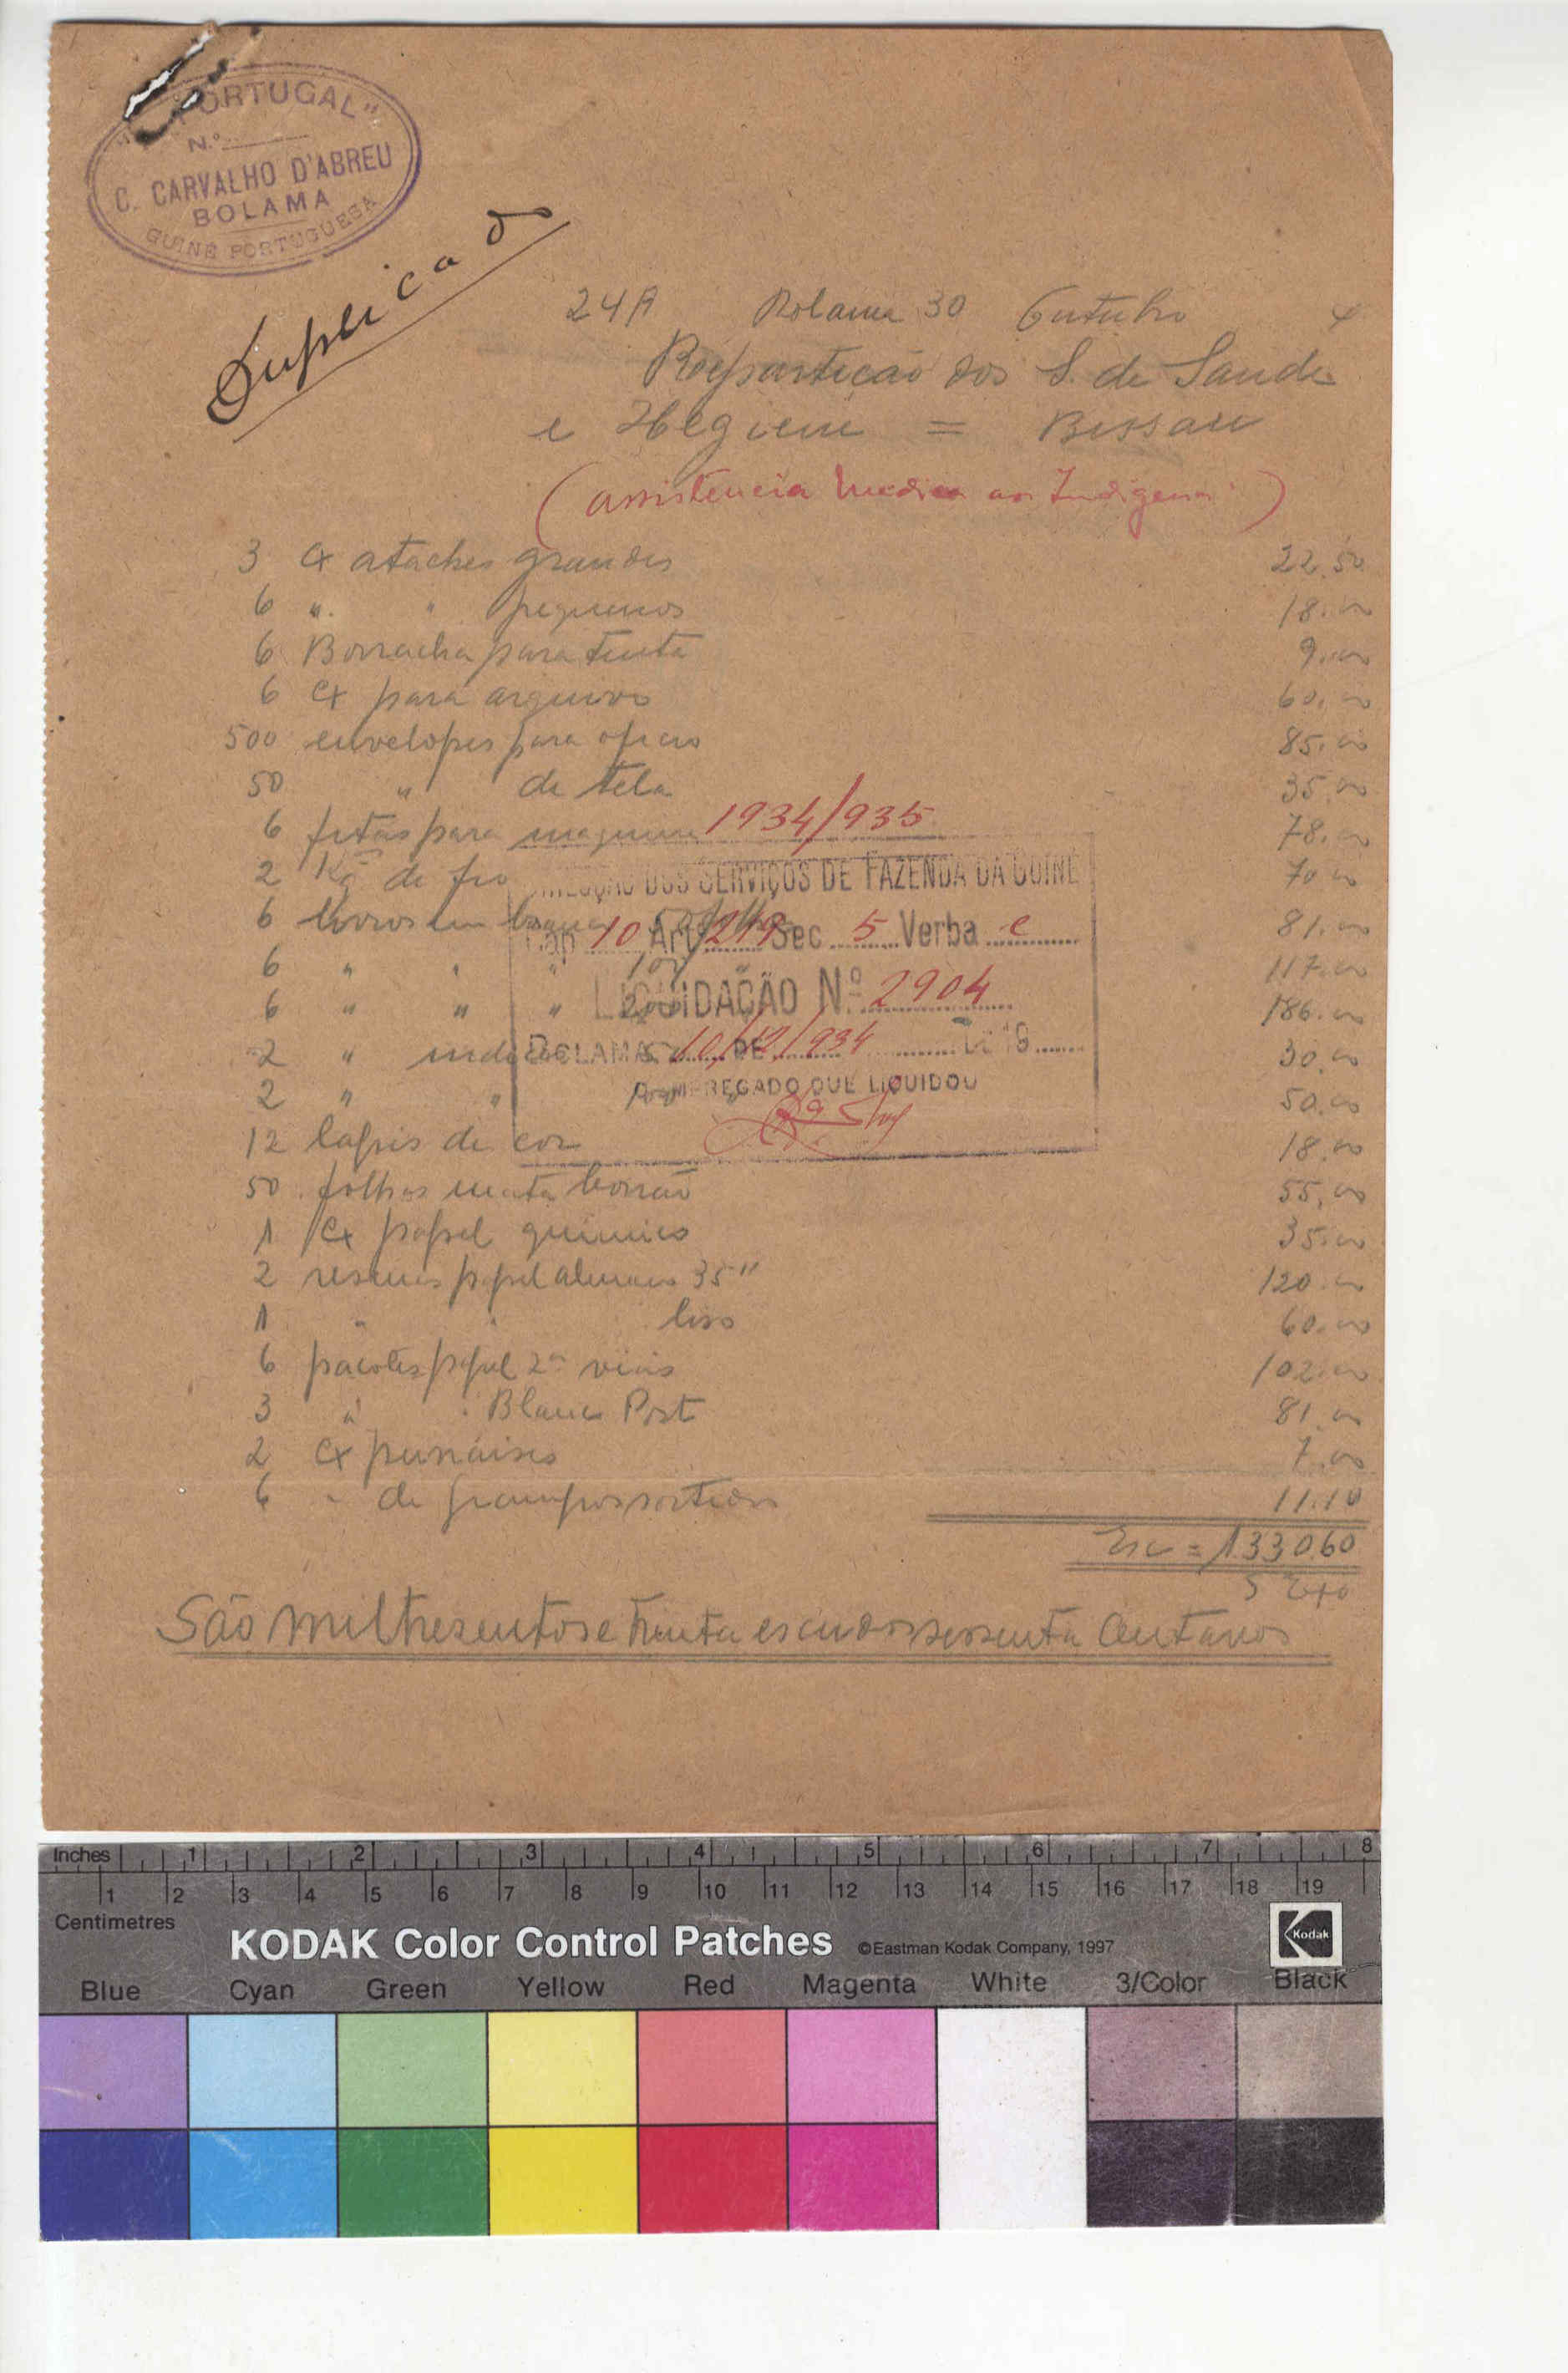 "PORTUGAL"
N.º
C. CARVALHO D'ABREU
BOLAMA
GUINÉ PORTUGUESA
Duplicado
24A Bolama 30 Outubro 4
Repartição dos S. de Saude
e Hegiene = Bissau
(assistencia Medica aos Indigenas)
3 Cx ataches grandes 22.50
6 " " pequenos 18.00
6 Borracha para tinta 9.00
6 Cx para arquivo 60.00
500 envelopes para oficio 85.00
50 " de tela 35.00
6 fitas para maquina 78.00
1934/935
2 Kg de fio 70.00
DIRECÇÃO DOS SERVIÇOS DE FAZENDA DA GUINÉ
6 livros em branco 50 folhas 81.00
Cap 10 Art 219 Sec 5 Verba e
6 " " " 100 " 117.00
6 " " " 200 186.00
LIQUIDAÇÃO Nº 2904
2 " indice 50 30.00
BOLAMA 10/12/934 DE DE 19
2 " " 100 " 50.00
O EMPREGADO QUE LIQUIDOU
12 lapis de cor 18.00
50 folhas mata borrão 55.00
1 Cx papel quimico 35.00
2 resmas papel almaço 35" 120.00
1 " " liso 60.00
6 pacotes papel 2as vias 102.00
3 " " Blanco Post 81.00
2 Cx punaises 7.00
6 " de grampos sortidos 11.10
Esc = 1.330.60
São mil tresentos e trinta escudos sessenta Centavos
Inches 1 2 3 4 5 6 7 8
1 2 3 4 5 6 7 8 9 10 11 12 13 14 15 16 17 18 19
Centimetres
KODAK Color Control Patches ©Eastman Kodak Company, 1997 Kodak
Blue Cyan Green Yellow Red Magenta White 3/Color Black